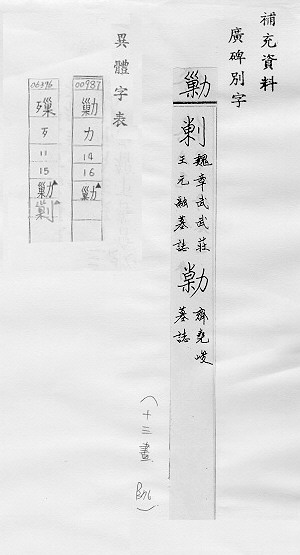 補充資料
廣碑別字
勦
剿
魏章武武莊
王元融墓誌
勦
齊堯峻
墓誌
(十三畫
異體字表
00937
勦
力
14
16
勦
06396
歹
11
15
勦
剿